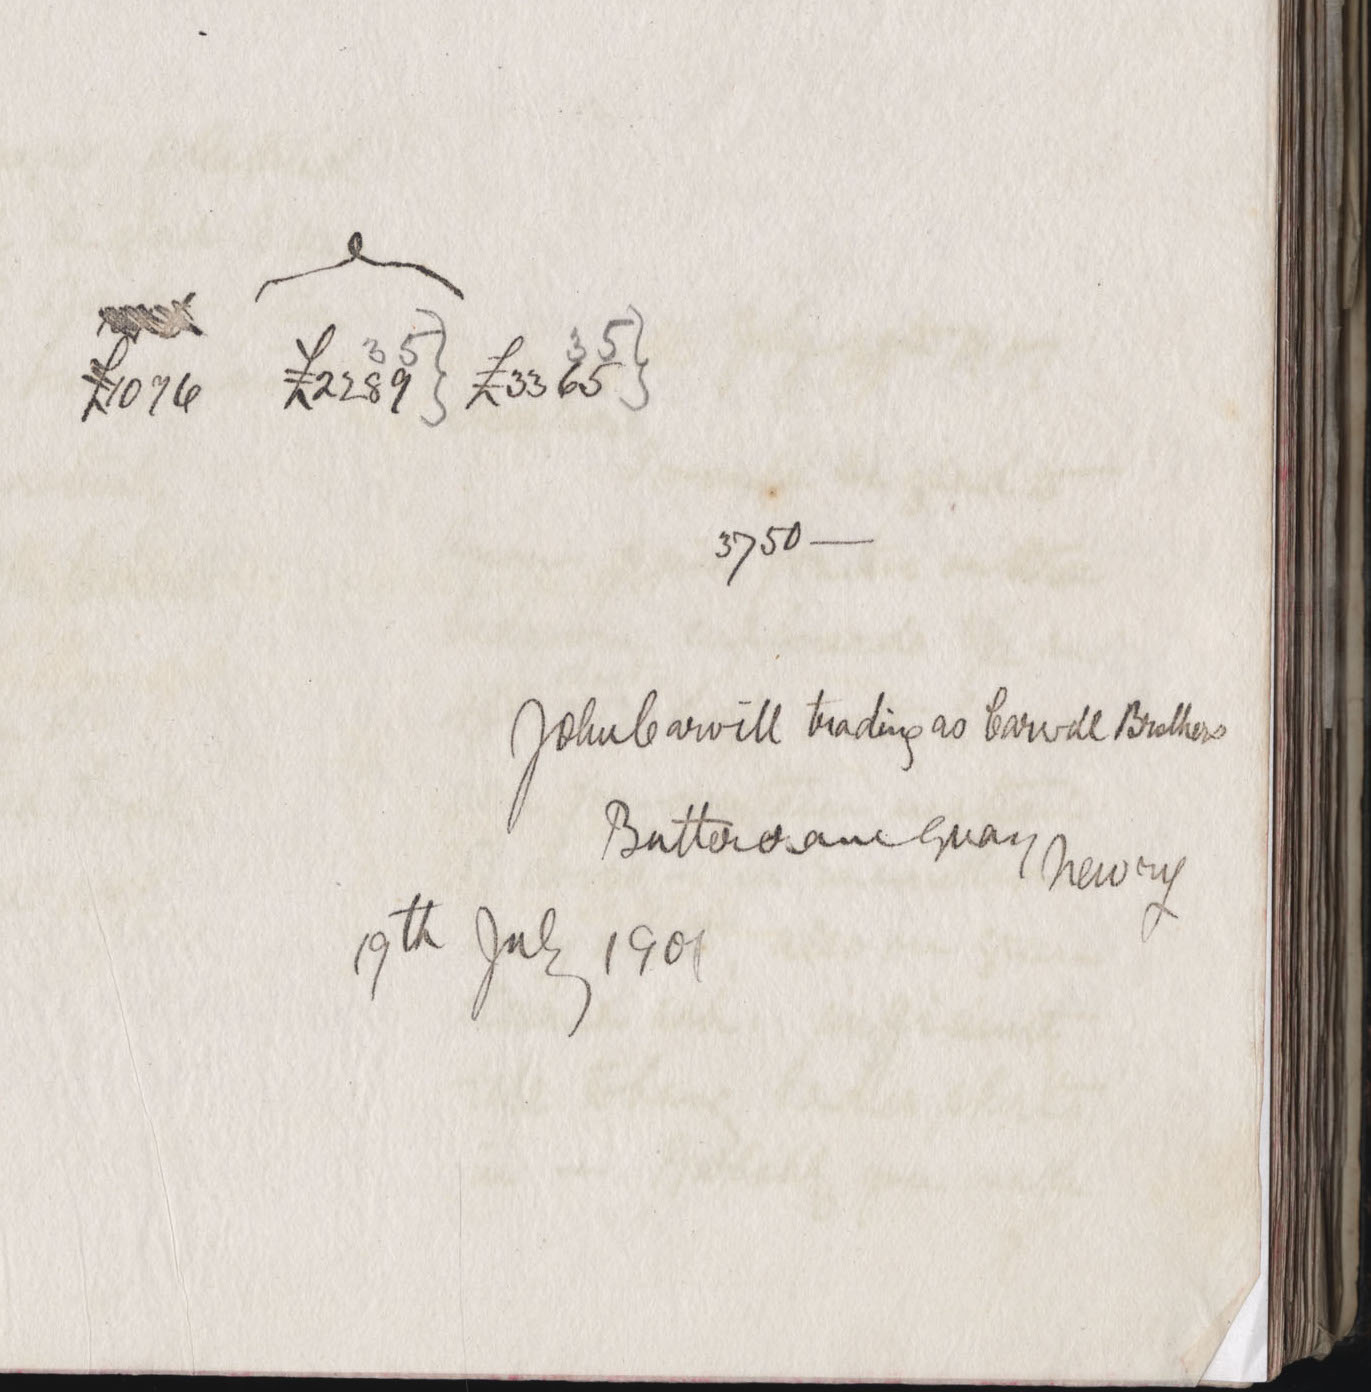 35 35
£1076 £2289 £3365
3750—
John Carvill trading as Carvill Brothers
Buttercrane Quay Newry
19th July 1901